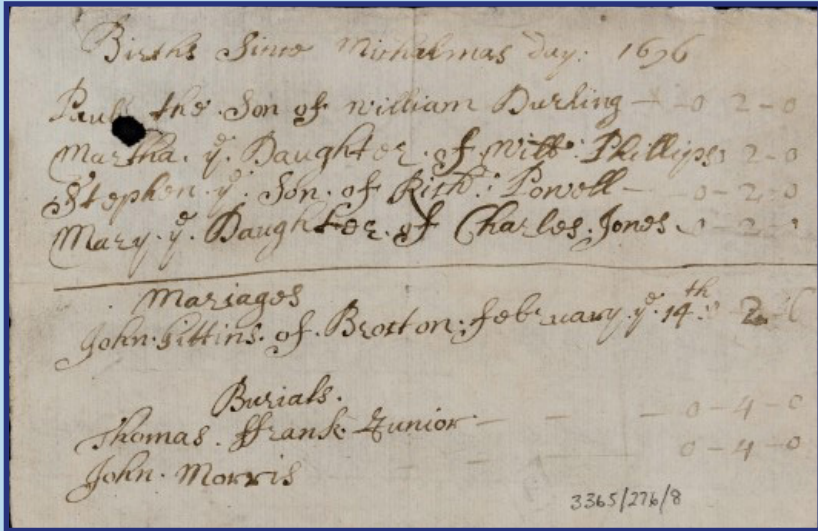 Births Since Michalmas day: 1696
Paull the Son of william Durling — -0 2-0
Martha. ye. Daughter of Will: Phillips 2-0
Stephen. ye. Son. of Rich: Powell — -0-2-0
Mary. ye. Daughter. of Charles. Jones. 0-2-
Mariages
John. Gittins. of. Broxton: february. ye. 14th: 2-
Burials.
Thomas. ffrank Junior — - — 0-4-0
John. Morris - - — 0-4-0
3365/276/8